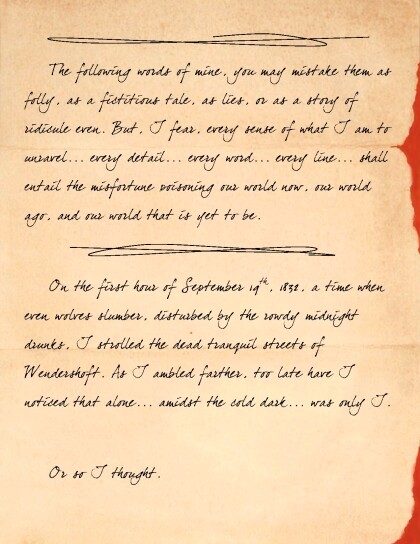 The following words of mine, you may mistake them as
folly, as a fictitious tale, as lies, or as a story of
ridicule even. But, I fear, every sense of what I am to
unravel... every detail... every word... every line... shall
entail the misfortune poisoning our world now, our world
ago, and our world that is yet to be.
On the first hour of September 19th, 1832, a time when
even wolves slumber, disturbed by the rowdy midnight
drunks, I strolled the dead tranquil streets of
Wendershoft. As I ambled farther, too late have I
noticed that alone... amidst the cold dark... was only I.
Or so I thought.